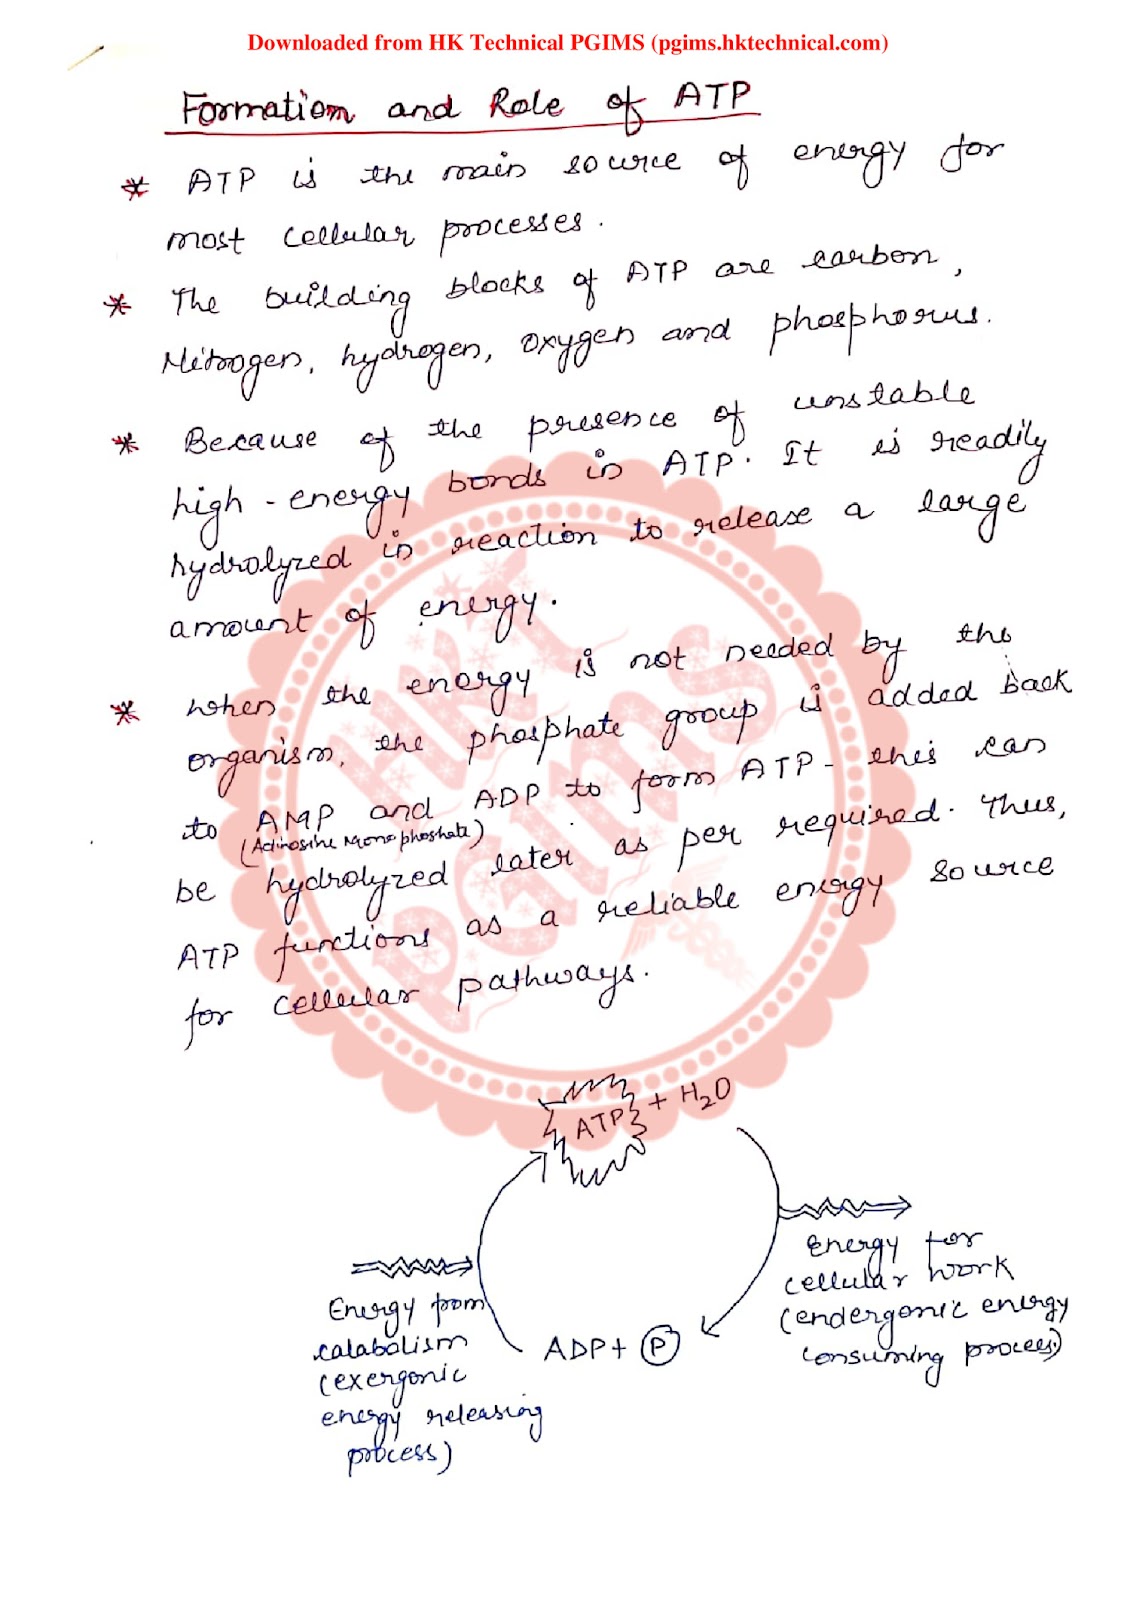 Downloaded from HK Technical PGIMS (pgims.hktechnical.com)
Formation and Role of ATP
* ATP is the main source of energy for
most cellular processes.
* The building blocks of ATP are carbon,
Nitrogen, hydrogen, oxygen and phosphorus.
* Because of the presence of unstable
high-energy bonds in ATP. It is readily
hydrolyzed in reaction to release a large
amount of energy.
* When the energy is not needed by the
organism, the phosphate group is added back
to AMP and ADP to form ATP - this can
(Adinosine Monophoshate)
be hydrolyzed later as per required. Thus,
ATP functions as a reliable energy source
for cellular pathways.
ATP + H2O
Energy for
cellular work
(endergonic energy
consuming process)
Energy from
catabolism
(exergonic
energy releasing
process)
ADP + P
HKT
PGIMS